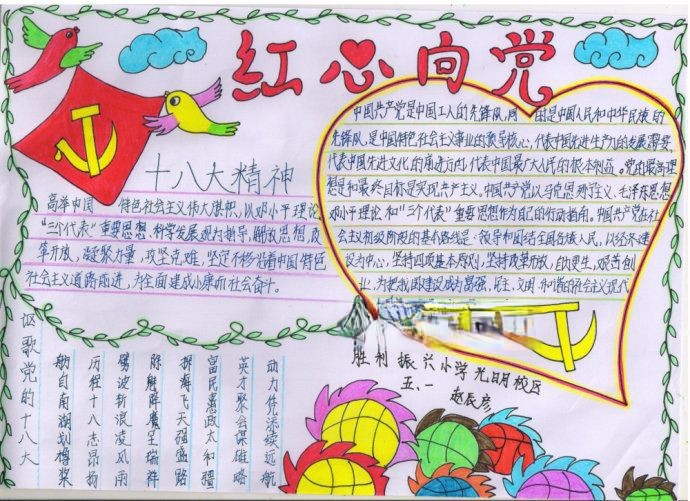 红心向党
十八大精神
高举中国 特色社会主义伟大旗帜,以邓小平理论
“三个代表”重要思想、科学发展观为指导,解放思想,改
革开放,凝聚力量,攻坚克难,坚定不移沿着中国特色
社会主义道路前进,为全面建成小康而社会奋斗。
中国共产党是中国工人的先锋队,同 时是中国人民和中华民族的
先锋队,是中国特色社会主义事业的领导核心,代表中国先进生产力的发展需要,
代表中国先进文化的前进方向,代表中国最广大人民的根本利益。党的最高理
想是和最终目标是实现共产主义。中国共产党以马克思列宁主义、毛泽东思想
邓小平理论和“三个代表”重要思想作为自己的行动指南。中国共产党在社
会主义初级阶段的基本路线是:领导和团结全国各族人民,以经济建
设为中心,坚持四项基本原则,坚持改革开放,自力更生,艰苦创
业,为把我国建设成为富强、民主、文明、和谐的社会主义现代
胜利振兴小学光明校区
五、一
赵辰彦
讴歌党的十八大
舫自南湖划橹桨
历程十八志昂扬
劈波斩浪凌风雨
除魔降魔呈瑞祥
探海飞天强盛路
富民惠政太和疆
英才聚会谋雄略
动力凭添续远航